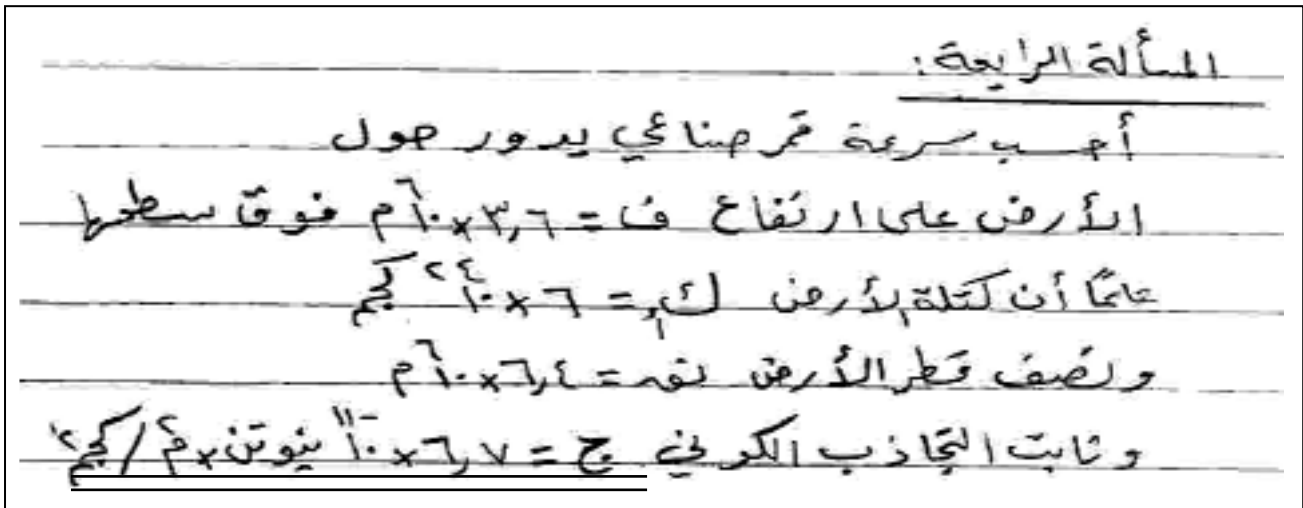 المسألة الرابعة:
أحسب سرعة قمر صناعي يدور حول
الأرض على ارتفاع ف = ٣,٦×١٠^٦ م فوق سطحها
علمًا أن كتلة الأرض ك₁ = ٦×١٠^٢٤ كجم
ونصف قطر الأرض نق = ٦,٤×١٠^٦ م
وثابت التجاذب الكوني ج = ٦,٧×١٠^-١١ نيوتن×م^٢/كجم^٢